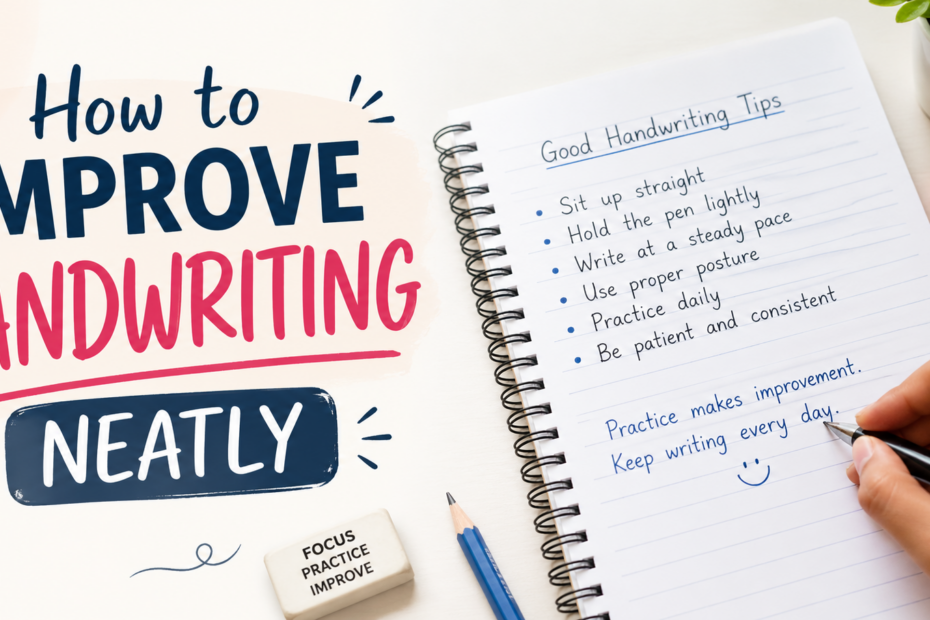 How to
MPROVE
ANDWRITING
NEATLY
FOCUS
PRACTICE
IMPROVE
Good Handwriting Tips
• Sit up straight
• Hold the pen lightly
• Write at a steady pace
• Use proper posture
• Practice daily
• Be patient and consistent
Practice makes improvement.
Keep writing every day.